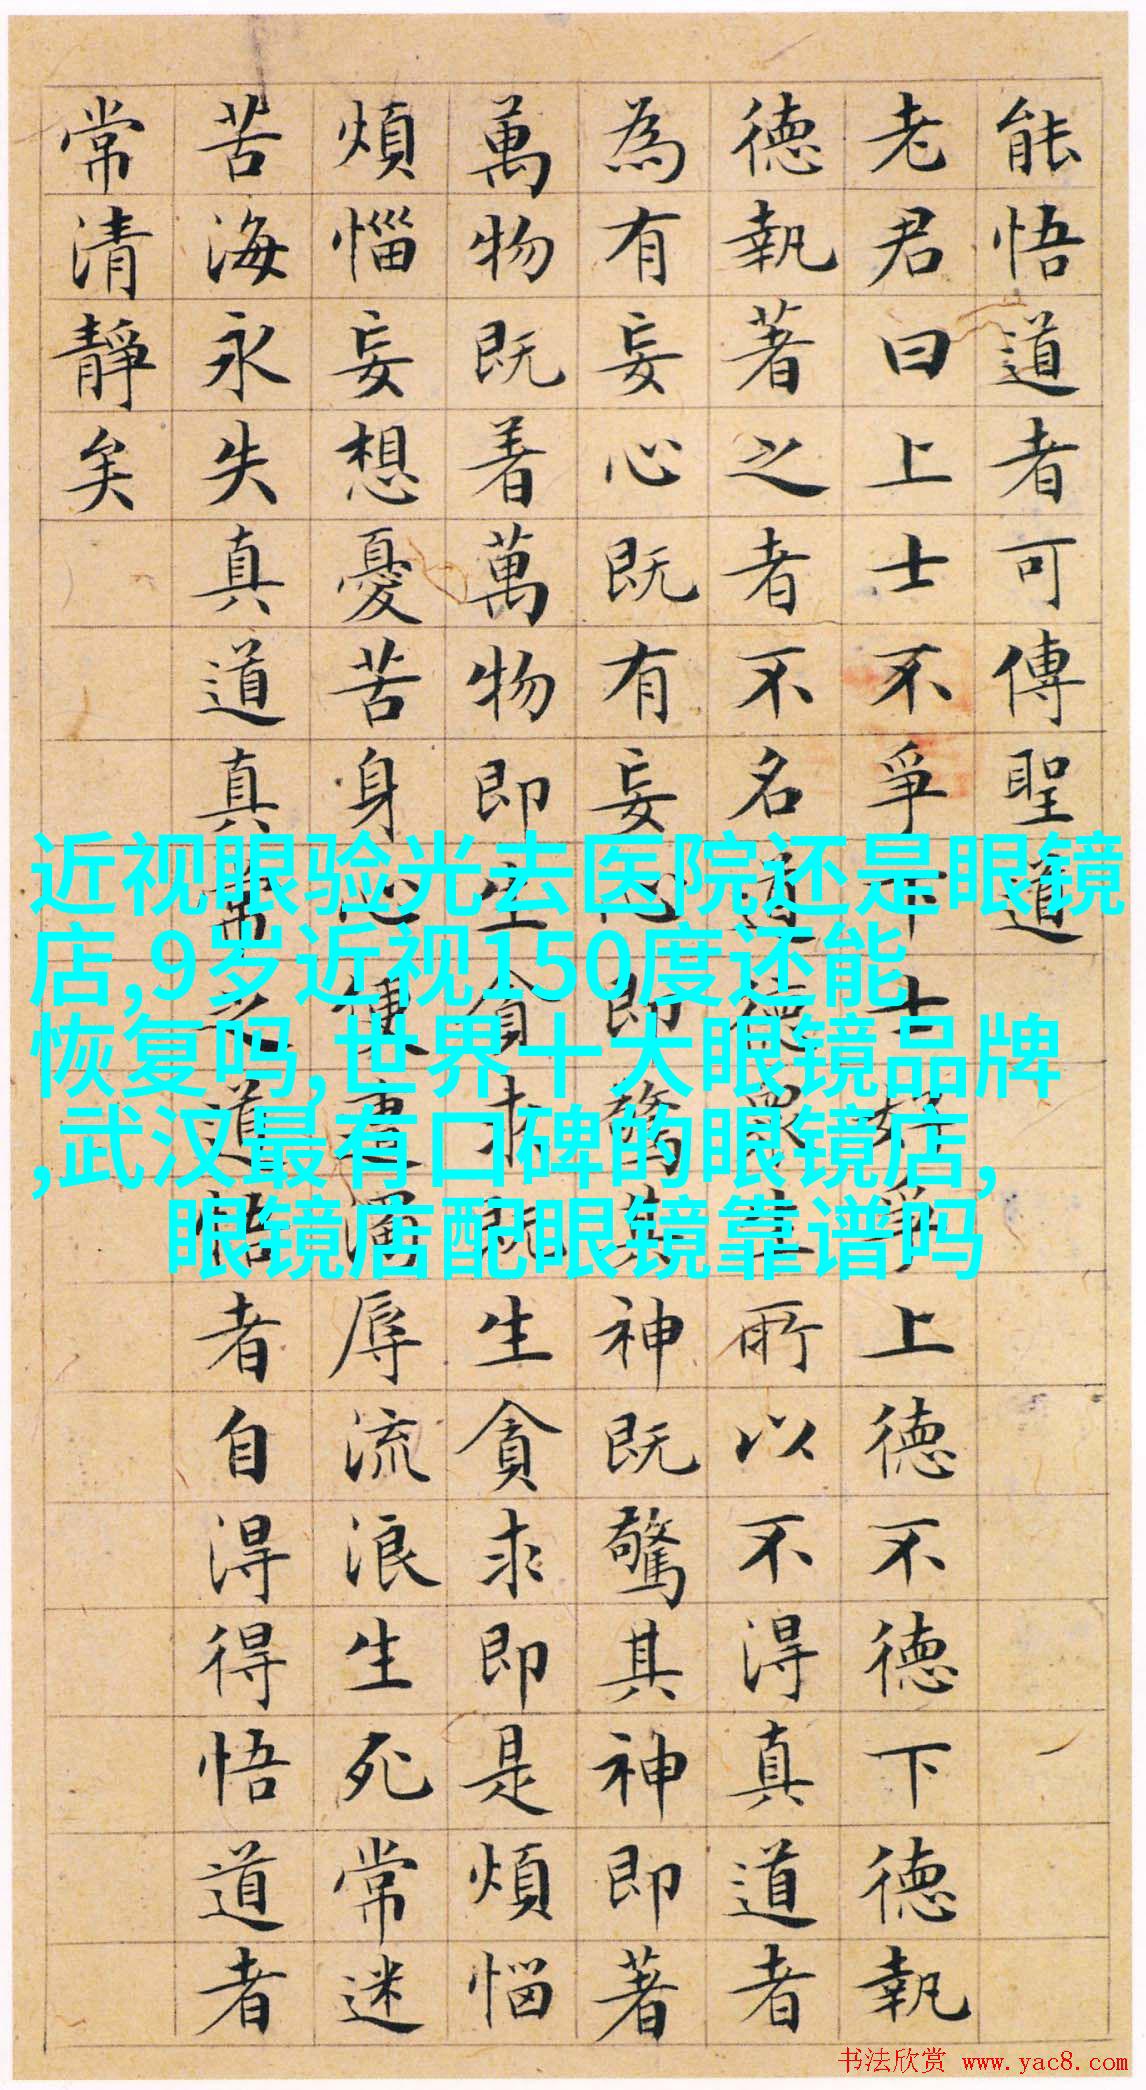 能悟道者可傳聖道
老君曰上士不爭下士好爭上德不德下德執
德執著之者不名道德眾生所以不得真道者
為有妄心既有妄心即驚其神既驚其神即著
萬物既着萬物即生貪求既生貪求即是煩惱
煩惱妄想憂苦身心便遭濁辱流浪生死常迷
苦海永失真道真常之道悟者自得得悟道者
常清靜矣
近视眼验光去医院还是眼镜
店,9岁近视150度还能
恢复吗,世界十大眼镜品牌
,武汉最有口碑的眼镜店,
眼镜店配眼镜靠谱吗
书法欣赏 www.yac8.com